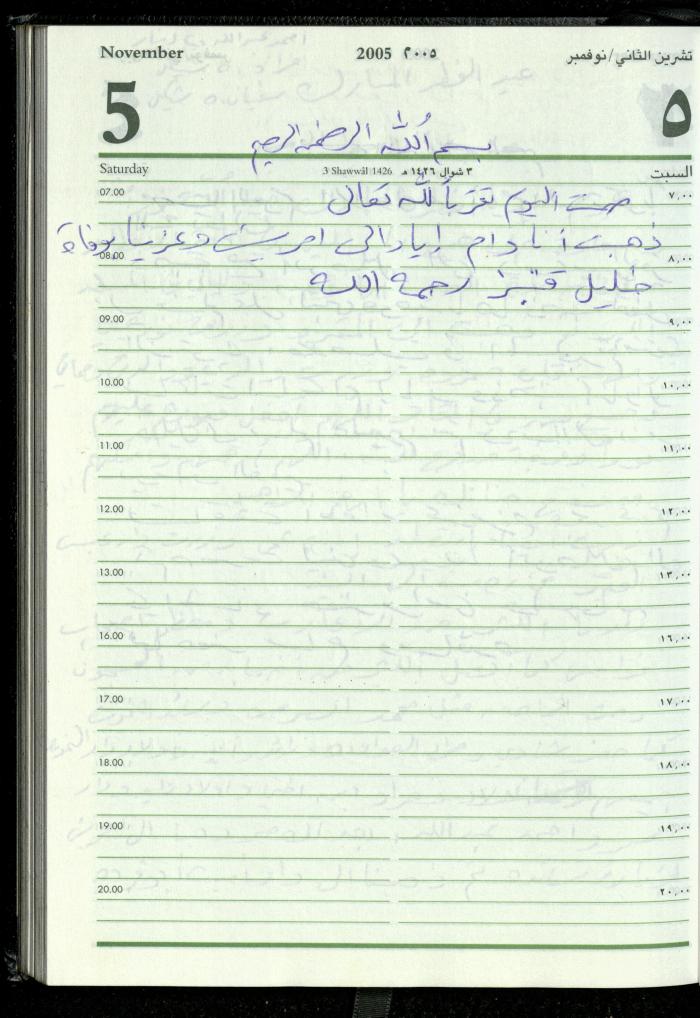 November 2005 ٢٠٠٥ تشرين الثاني/نوفمبر
5 ٥
بسم الله الرحمن الرحيم
Saturday 3 Shawwâl 1426 ٣ شوال ١٤٢٦ هـ السبت
07.00 صمت اليوم تقرباً لله تعالى ٧,٠٠
ذهبت أنا وأم إياد الى امريش وعزينا بوفاة
08.00 ٨,٠٠
خليل قنبز رحمه الله
09.00 ٩,٠٠
10.00 ١٠,٠٠
11.00 ١١,٠٠
12.00 ١٢,٠٠
13.00 ١٣,٠٠
16.00 ١٦,٠٠
17.00 ١٧,٠٠
18.00 ١٨,٠٠
19.00 ١٩,٠٠
20.00 ٢٠,٠٠